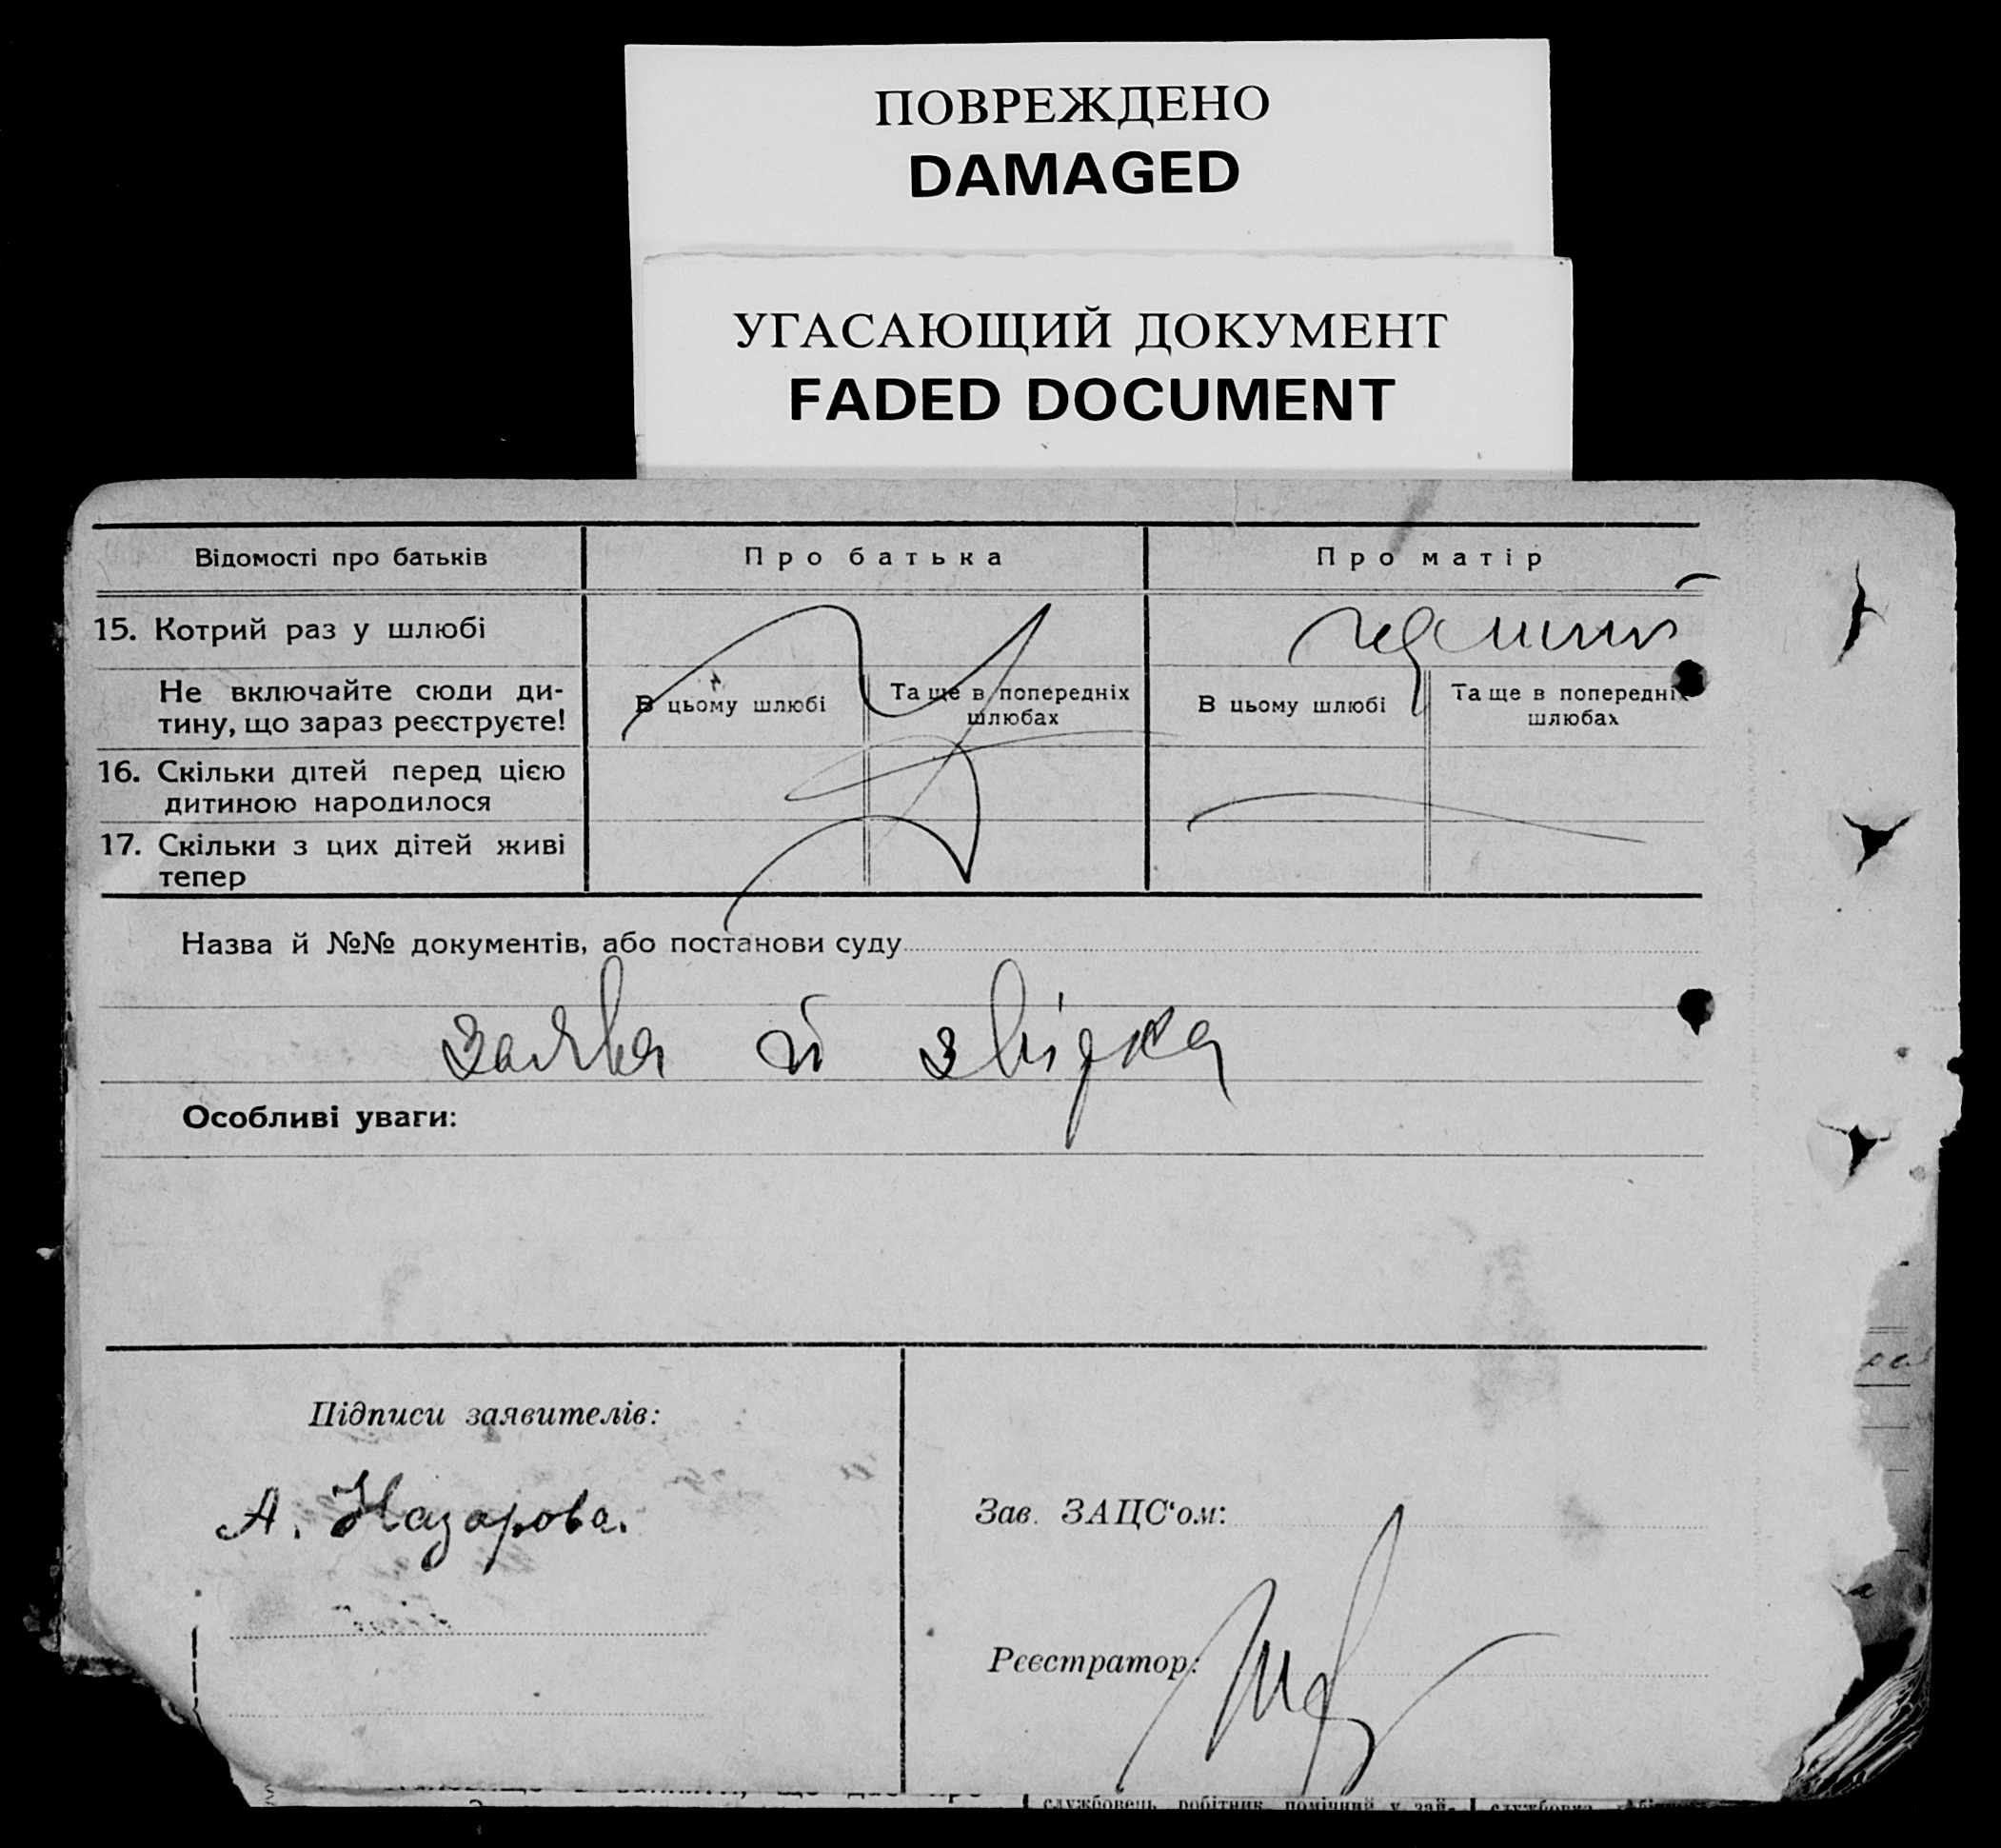 ПОВРЕЖДЕНО
DAMAGED
УГАСАЮЩИЙ ДОКУМЕНТ
FADED DOCUMENT
Відомості про батьків
Про батька
Про матір
15. Котрий раз у шлюбі
Не включайте сюди ди-
тину, що зараз реєструєте!
В цьому шлюбі
Та ще в попередніх
шлюбах
В цьому шлюбі
Та ще в попередніх
шлюбах
16. Скільки дітей перед цією
дитиною народилося
17. Скільки з цих дітей живі
тепер
Назва й №№ документів, або постанови суду
заява й звідка
Особливі уваги:
Підписи заявителів:
А. Назарова.
Зав. ЗАЦС‘ом:
Реєстратор:
службовець, робітник, помічний у зай-